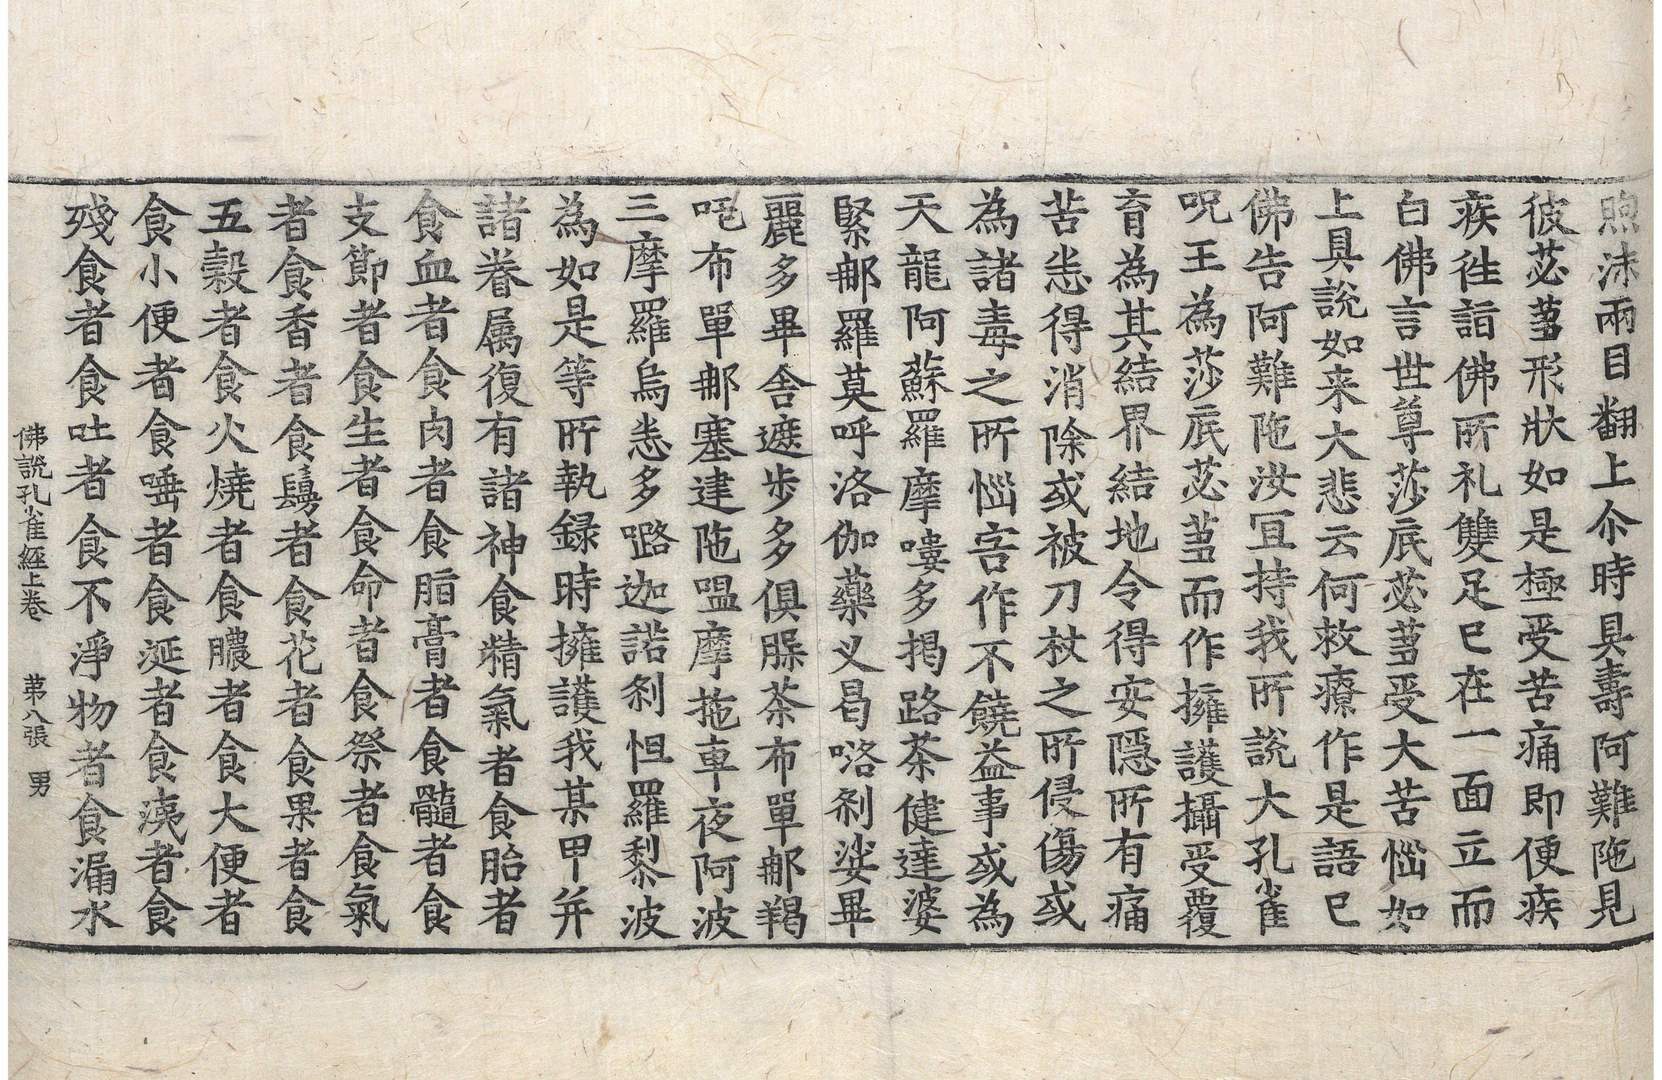 煦沫兩目翻上尒時具壽阿難陁見
彼苾芻形狀如是極受苦痛即便疾
疾徃詣佛所礼雙足已在一面立而
白佛言世尊莎底苾芻受大苦惱如
上具說如来大悲云何救療作是語已
佛告阿難陁汝冝持我所說大孔雀
呪王為莎底苾芻而作擁護攝受覆
育為其結界結地令得安隱所有痛
苦悉得消除或被刀杖之所侵傷或
為諸毒之所惱害作不饒益事或為
天龍阿蘇羅摩嘍多掲路荼健達婆
緊那羅莫呼洛伽藥叉曷咯剎娑畢
麗多畢舍遮步多俱槃荼布單那羯
吒布單那塞建陁嗢摩拖車夜阿波
三摩羅烏悉多嚕迦諾剎怛羅黎波
為如是等所執録時擁護我某甲并
諸眷属復有諸神食精氣者食胎者
食血者食肉者食脂膏者食髓者食
支節者食生者食命者食祭者食氣
者食香者食鬘者食花者食果者食
五穀者食火燒者食膿者食大便者
食小便者食唾者食涎者食洟者食
殘食者食吐者食不淨物者食漏水
佛說孔雀經上卷 苐八張 男